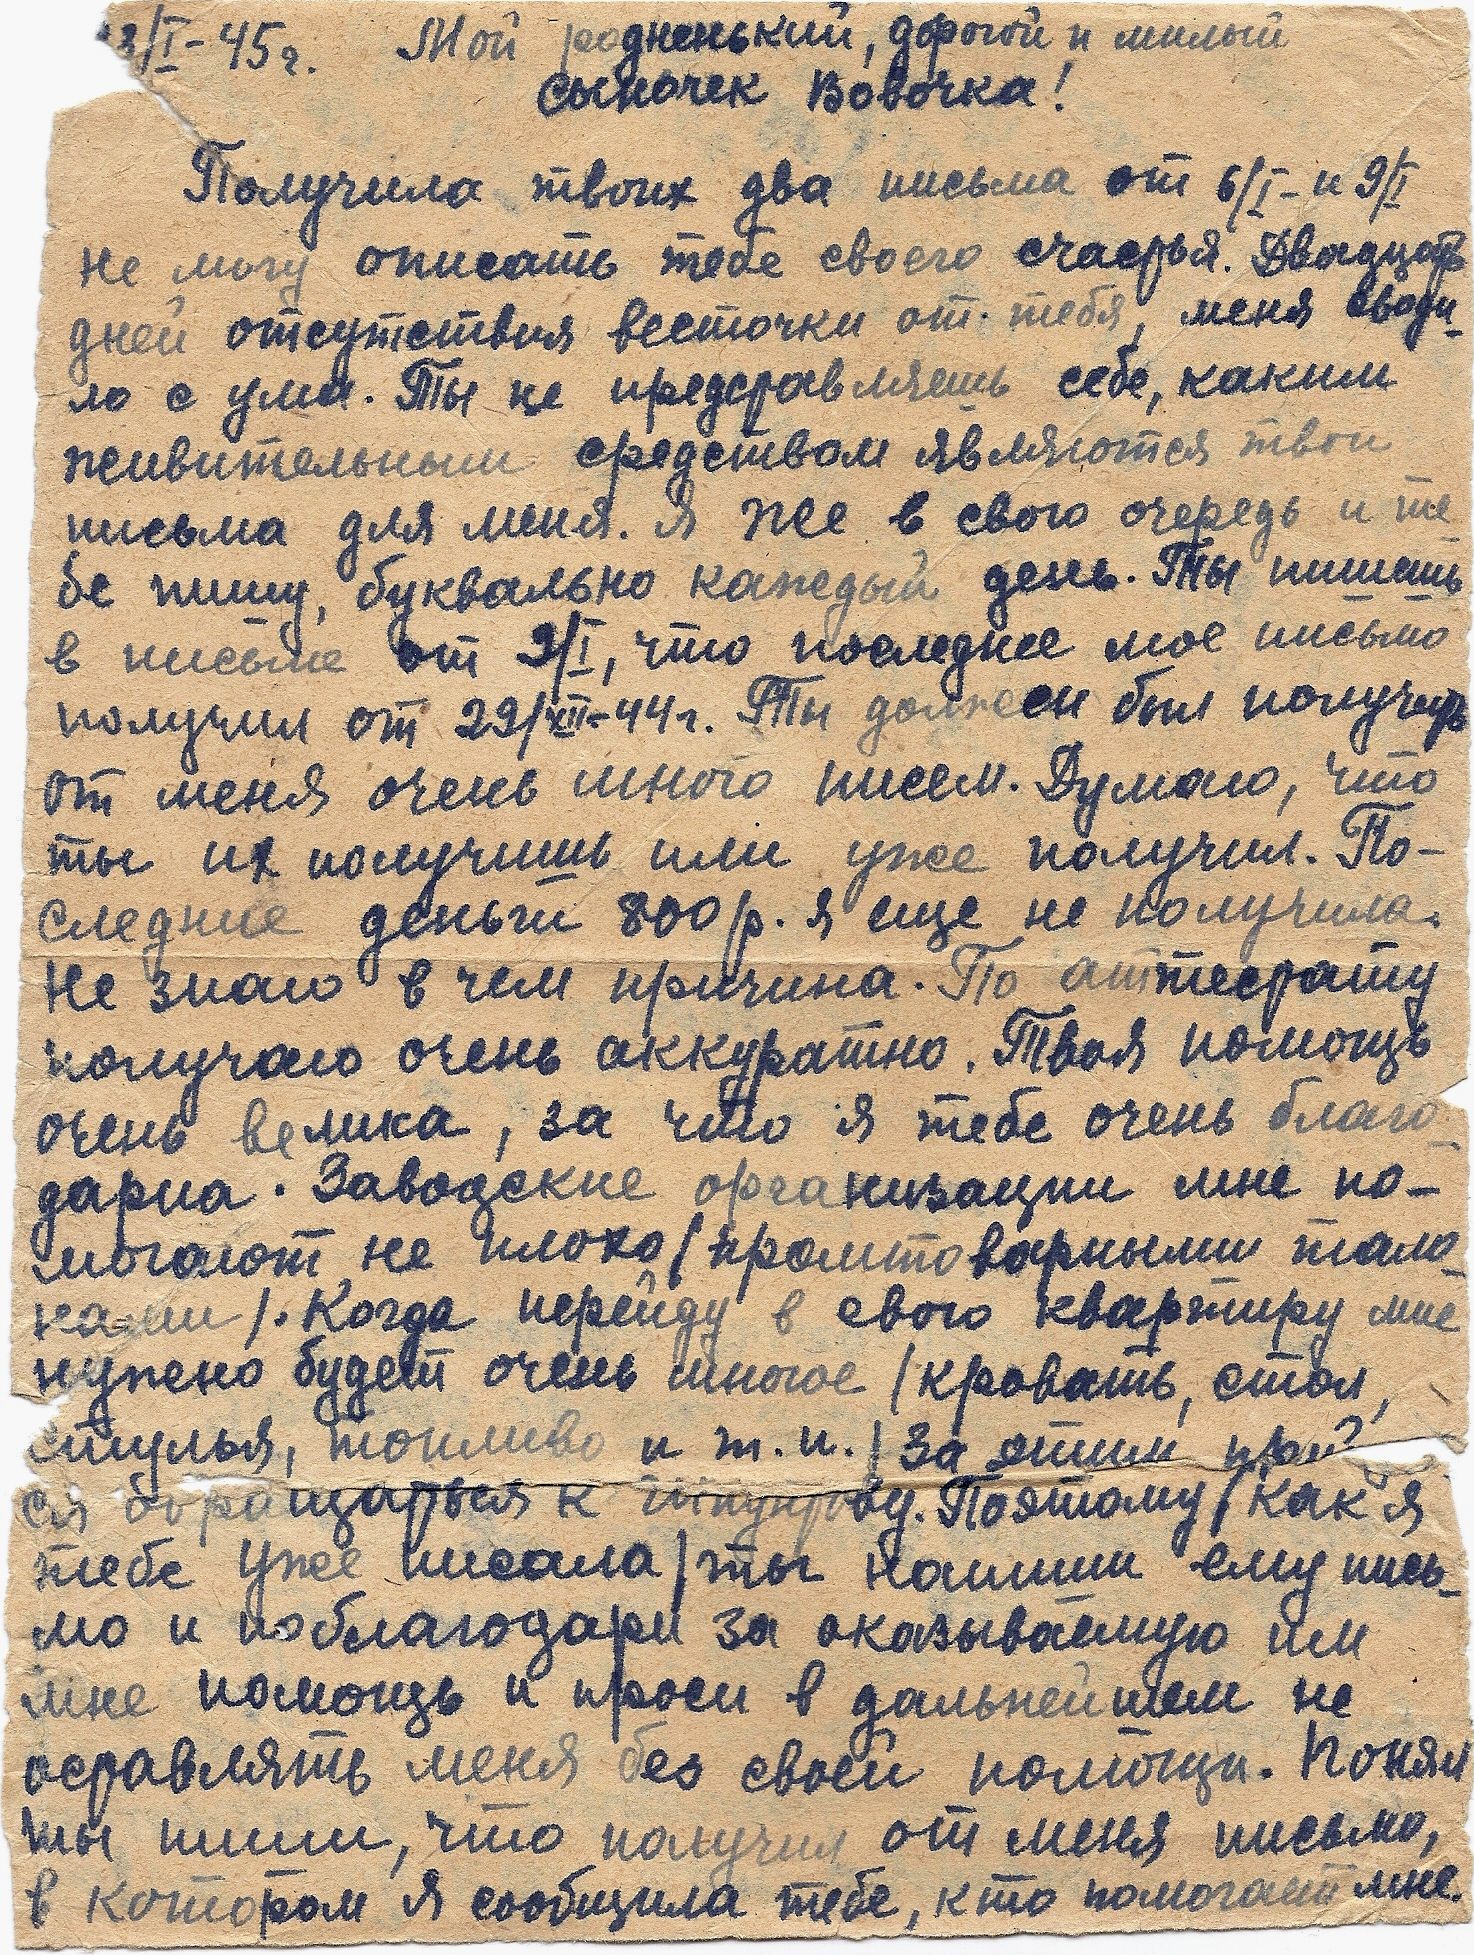 3/I-45г. Мой родненький, дорогой и милый
сыночек Вовочка!
Получила твоих два письма от 6/I- и 9/I
не могу описать тебе своего счастья. Двадцать
дней отсутствия весточки от тебя, меня своди-
ло с ума. Ты не представляешь себе, каким
живительным средством являются твои
письма для меня. Я же в свою очередь и те-
бе пишу, буквально каждый день. Ты пишешь
в письме от 9/I, что последнее мое письмо
получил от 29/XII-44г. Ты должен был получить
от меня очень много писем. Думаю, что
ты их получишь или уже получил. По-
следние деньги 800 р. я еще не получила.
Не знаю в чем причина. По аттестату
получаю очень аккуратно. Твоя помощь
очень велика, за что я тебе очень благо-
дарна. Заводские организации мне по-
могают не плохо /промтоварными тало-
нами/. Когда перейду в свою квартиру мне
нужно будет очень многое /кровать, стол,
стулья, топливо и т.п./ За этим
ся обращаться к Поэтому /как я
тебе уже писала/ ты напиши ему пись-
мо и поблагодари за оказываемую им
мне помощь и проси в дальнейшем не
оставлять меня без своей помощи. Понял
ты пиши, что получил от меня письмо,
в котором я сообщила тебе, кто помогает мне.